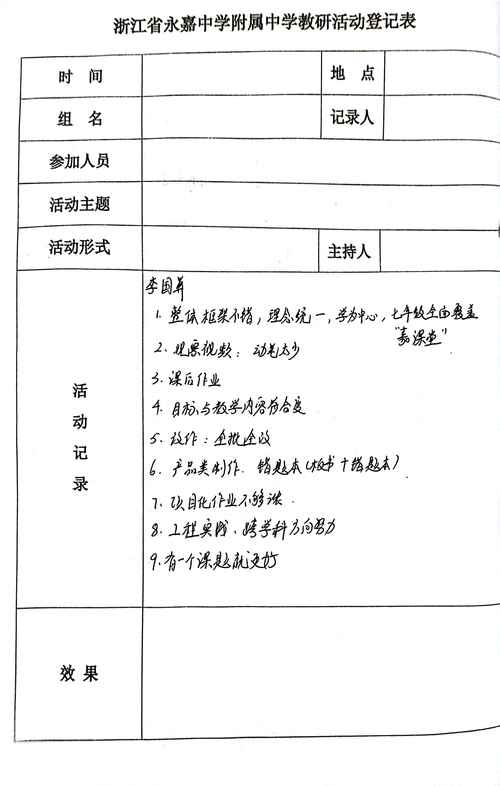 浙江省永嘉中学附属中学教研活动登记表
时 间
地 点
组 名
记录人
参加人员
活动主题
活动形式
主持人
活动记录
李国年
1. 整体框架不错，理念统一，学为中心，七年级全面覆盖
"嘉课堂"
2. 观察视频：动笔太少
3. 课后作业
4. 目标与教学内容符合度
5. 设作：全批全改
6. 产品类制作. 错题本(板书十错题本)
7. 项目化作业不够满.
8. 工程实践、跨学科方向努力
9. 有一个课题就更好
效 果